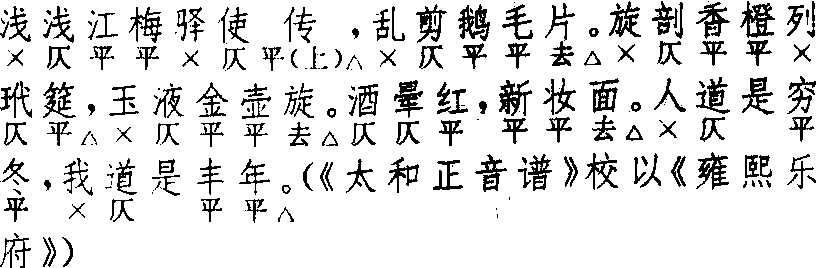 浅浅江梅驿使传，乱剪鹅毛片。旋剖香橙列
×仄平平×仄平(上)△×仄平平去△×仄平平×
玳筵，玉液金壶旋。酒晕红，新妆面。人道是穷
仄平△×仄平平去△仄仄平平平去△×仄平
冬，我道是丰年。(《太和正音谱》校以《雍熙乐
平×仄平平△
府》)